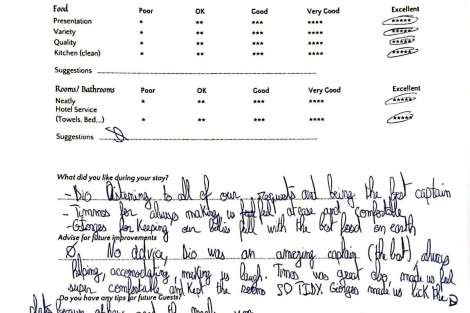 Food Poor OK Good Very Good Excellent
Presentation * ** *** **** *****
Variety * ** *** **** *****
Quality * ** *** **** *****
Kitchen (clean) * ** *** **** *****
Suggestions
Rooms/ Bathrooms Poor OK Good Very Good Excellent
Neatly * ** *** **** *****
Hotel Service
(Towels, Bed...) * ** *** **** *****
Suggestions
What did you like during your stay?
- Dio listening to all of our requests and being the best captain
- Tymmos for always making us feel at ease and comfortable
- Georges for keeping our bellies full with the best food on earth
Advise for future improvements
Ø No advice, Dio was an amazing captain (the best), always
helping, accomodating, making us laugh. Timos was great also, made us feel
super comfortable and kept the rooms SO TIDY. Georges made us lick the
Do you have any tips for future Guests?